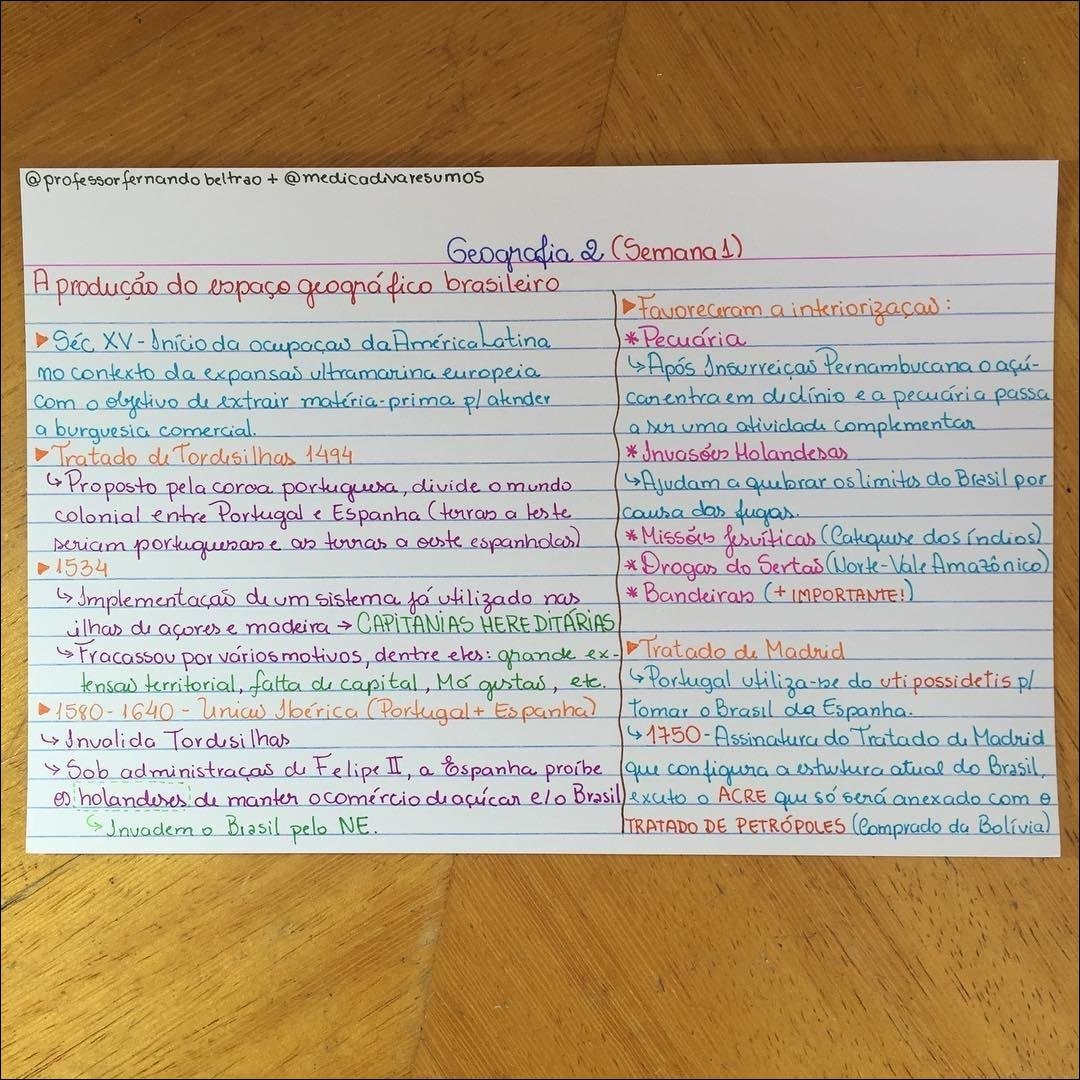 @professorfernandobeltrao + @medicadivaresumos
Geografia 2 (Semana 1)
A produção do espaço geográfico brasileiro
▶Séc XV - Início da ocupação da América Latina
no contexto da expansão ultramarina europeia
com o objetivo de extrair matéria-prima p/ atender
a burguesia comercial.
▶Tratado de Tordesilhas 1494
↳Proposto pela coroa portuguesa, divide o mundo
colonial entre Portugal e Espanha (terras a leste
seriam portuguesas e as terras a oeste espanholas)
▶1534
↳Implementação de um sistema já utilizado nas
ilhas de açores e madeira → CAPITANIAS HEREDITÁRIAS
↳Fracassou por vários motivos, dentre eles: grande ex-
tensão territorial, falta de capital, má gestão, etc.
▶1580 - 1640 - União Ibérica (Portugal + Espanha)
↳Invalida Tordesilhas
↳Sob administração de Felipe II, a Espanha proíbe
os holandeses de manter o comércio de açúcar c/o Brasil
↳Invadem o Brasil pelo NE.
▶Favoreceram a interiorização:
*Pecuária
↳Após Insurreição Pernambucana o açú-
car entra em declínio e a pecuária passa
a ser uma atividade complementar
*Invasões Holandesas
↳Ajudam a quebrar os limites do Brasil por
causa das fugas.
*Missões Jesuíticas (Catequese dos índios)
*Drogas do Sertão (Norte-Vale Amazônico)
*Bandeiras (+ IMPORTANTE!)
▶Tratado de Madrid
↳Portugal utiliza-se do uti possidetis p/
tomar o Brasil da Espanha.
↳1750 - Assinatura do Tratado de Madrid
que configura a estrutura atual do Brasil,
exceto o ACRE que só será anexado com o
TRATADO DE PETRÓPOLES (Comprado da Bolívia)